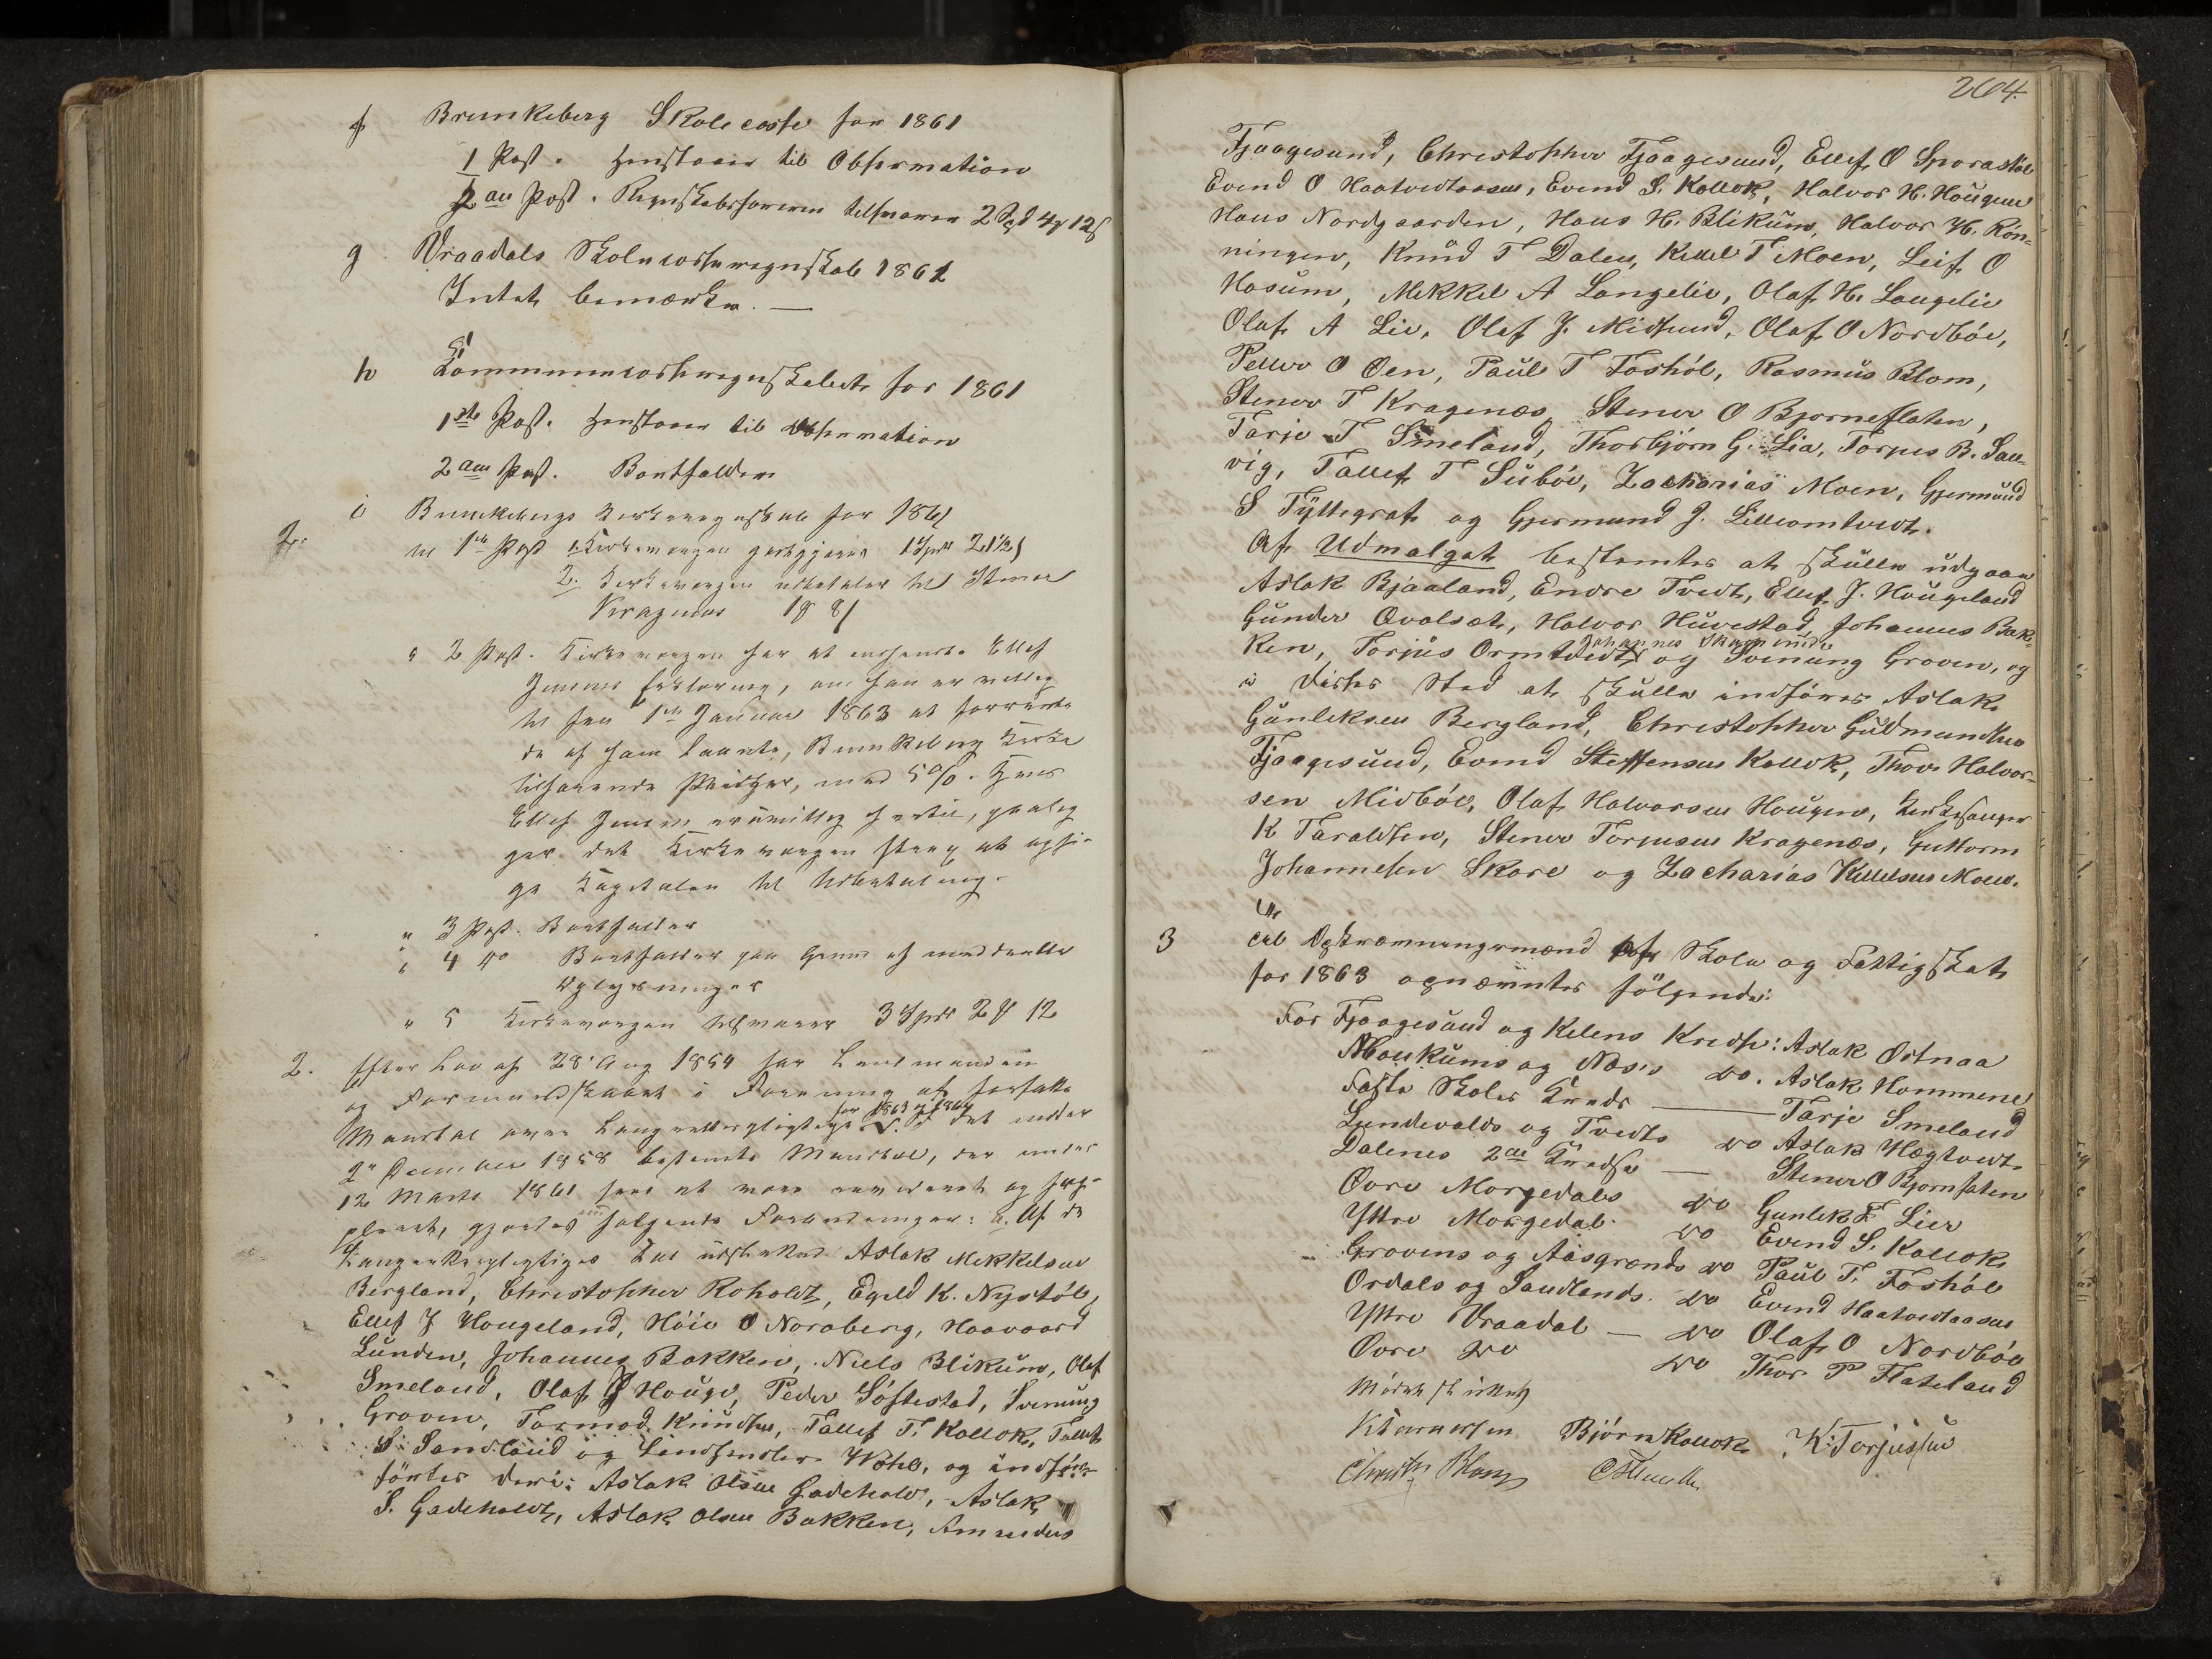 f Brunkeberg Skolecasse for 1861
1 Post. Henstaaer til Observation
2den Post. Regnskabsføreren tilsvarer 2 Spd 4 # 12 s
g Vraadals Skolecasseregnskab 1861
Intet bemærke. —
h Kommunecasseregnskabet for 1861
1ste Post. Henstaaer til Observation
2den Post. Bortfalder
i Brunkebergs Kirkeregnskab for 1861
til 1ste Post 1. Kirkeværgen godtgjøres 1 Spd 21½ s
2. Kirkeværgen udbetaler til Stener
Kragenæs 18 s
" 2 Post. Kirkeværgen har at indhente Ellef
Jensens Erklæring, om han er villig
til fra 1ste Januar 1863 at forrente
de af ham laante, Brunkeberg Kirke
tilhørende Penger, med 5 %. Hvis
Ellef Jensen er uvillig hertil, paalig-
ger det Kirkeværgen strax at opsi-
ge Kapitalen til Udbetaling.
" 3 Post. Bortfalder
" 4 do Bortfalder paa Grund af meddeelte
Oplysninger
" 5 Kirkeværgen tilsvarer 3 Spd 2 # 12
2. Efter Lov af 28 Aug 1854 har Lensmanden
og Formandskabet i Forening at forfatte
Mandtal over Laugrettespligtige for 1863 & 1864. I det under
2den December 1858 bestemte Mandtal, der under
12 Marts 1861 sees at være revideret og sup-
pleret, gjordes nu følgende Forandringer: a. Af de
Laugrettespligtiges Tal udslettedes Aslak Mikkelsen
Bergland, Christopher Roholdt, Egild K. Nystøl,
Ellef J Hougeland, Høie O Noraberg, Haavaard
Lunden, Johannes Bakken, Niels Blikum, Olaf
Smeland, Olaf J Houge, Peder Söftestad, Svenung
Groven, Tormod Knudsen, Tallef T. Kollok, Tallef
S. Sandland og Landhandler Wøhle, og indfør-
førtes deri: Aslak Olsen Gadeholdt, Aslak
S. Gadeholdt, Aslak Olsen Bakken, Amundus
264.
Fjaagesund, Christopher Fjaagesund, Ellef O Sporastøl
Evend O Haatvedtaasen, Evend S. Kollok, Halvor H. Hougene
Hans Nordgaarden, Hans H. Blikum, Halvor H. Røn-
ningen, Knud T Dalen, Kittil T Moen, Leif O
Hasum, Mikkel A Langelie, Olaf H. Langelie
Olaf A Lie, Olaf J. Midsund, Olaf O Nordbøe,
Petter O Øen, Paul T Foshøl, Rasmus Blom,
Stener T Kragenæs, Stener O Bjorneflaten,
Tarje T Smeland, Thorbjørn G. Lia, Torjus B. Sau-
vig, Tallef T Subøe, Zacharias Moen, Gjermund
S Tyttegraf og Gjermund J. Lilleomtvedt.
Af Udvalget bestemtes at skulle udgaae
Aslak Bjaaland, Endre Tvedt, Ellef J. Hougeland
Gunder Qvalsæt, Halvor Huvestad, Johannes Bak-
Johannes Skaymude
ken, Torjus Ormtvedt og Svenung Groven, og
i disses Sted at skulle indføres Aslak
Gunleksen Bergland, Christopher Gudmundsen
Fjaagesund, Evend Steffensen Kollok, Thov Halvor-
sen Midbøe, Olaf Halvorsen Hougen, Kirkesanger
K Taraldsen, Stener Torjusen Kragenæs, Guttorm
Johannesen Skare og Zacharias Kittilsen Moen.
3 Til Opkrævningsmænd for Skole og Fattigskat
for 1863 opnævntes følgende:
For Fjaagesund og Kilens Kreds: Aslak Østnaa
Moukums og Næs's do. Aslak Hommene
Faste Skoles Kreds — Tarje Smeland
Lundevalds og Tvedts do Aslak Hægtvedt
Dalenes 2den Kreds — Stener O Bjornflaten
Øvre Morgedals do Gunlek F Lier
Yttre Morgedal do Evend S. Kollok
Grovens og Aasgrænds do Paul T. Foshøl
Ordals og Sandlands do Evend Haatvedtaasen
Yttre Vraadal — do Olaf O Nordbøe
Øvre do do Thor P Flateland
Mødet sluttet
Bjørn Kollok K. Torjussen